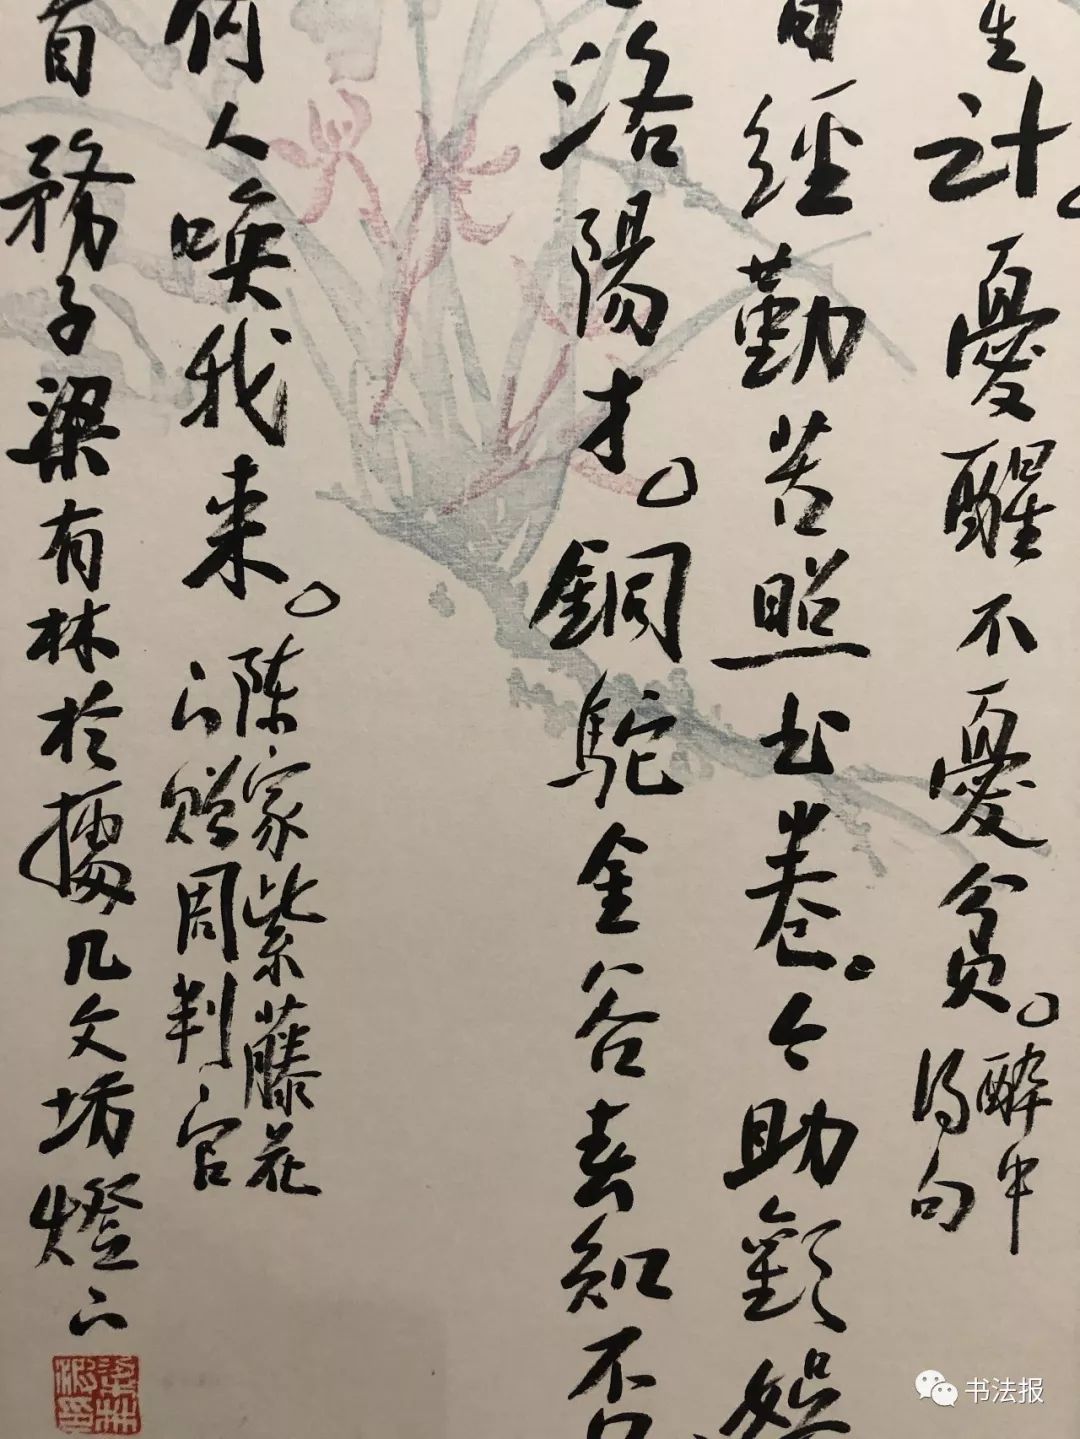 生计。憂醒不憂貧。醉中
得句
自經勤苦照书卷。今助歡娱
洛陽才。銅駝金谷春知不
何人唤我来。陈家紫藤花
下赠周判官
首 務子梁有林於據几文坊燈下
书法报